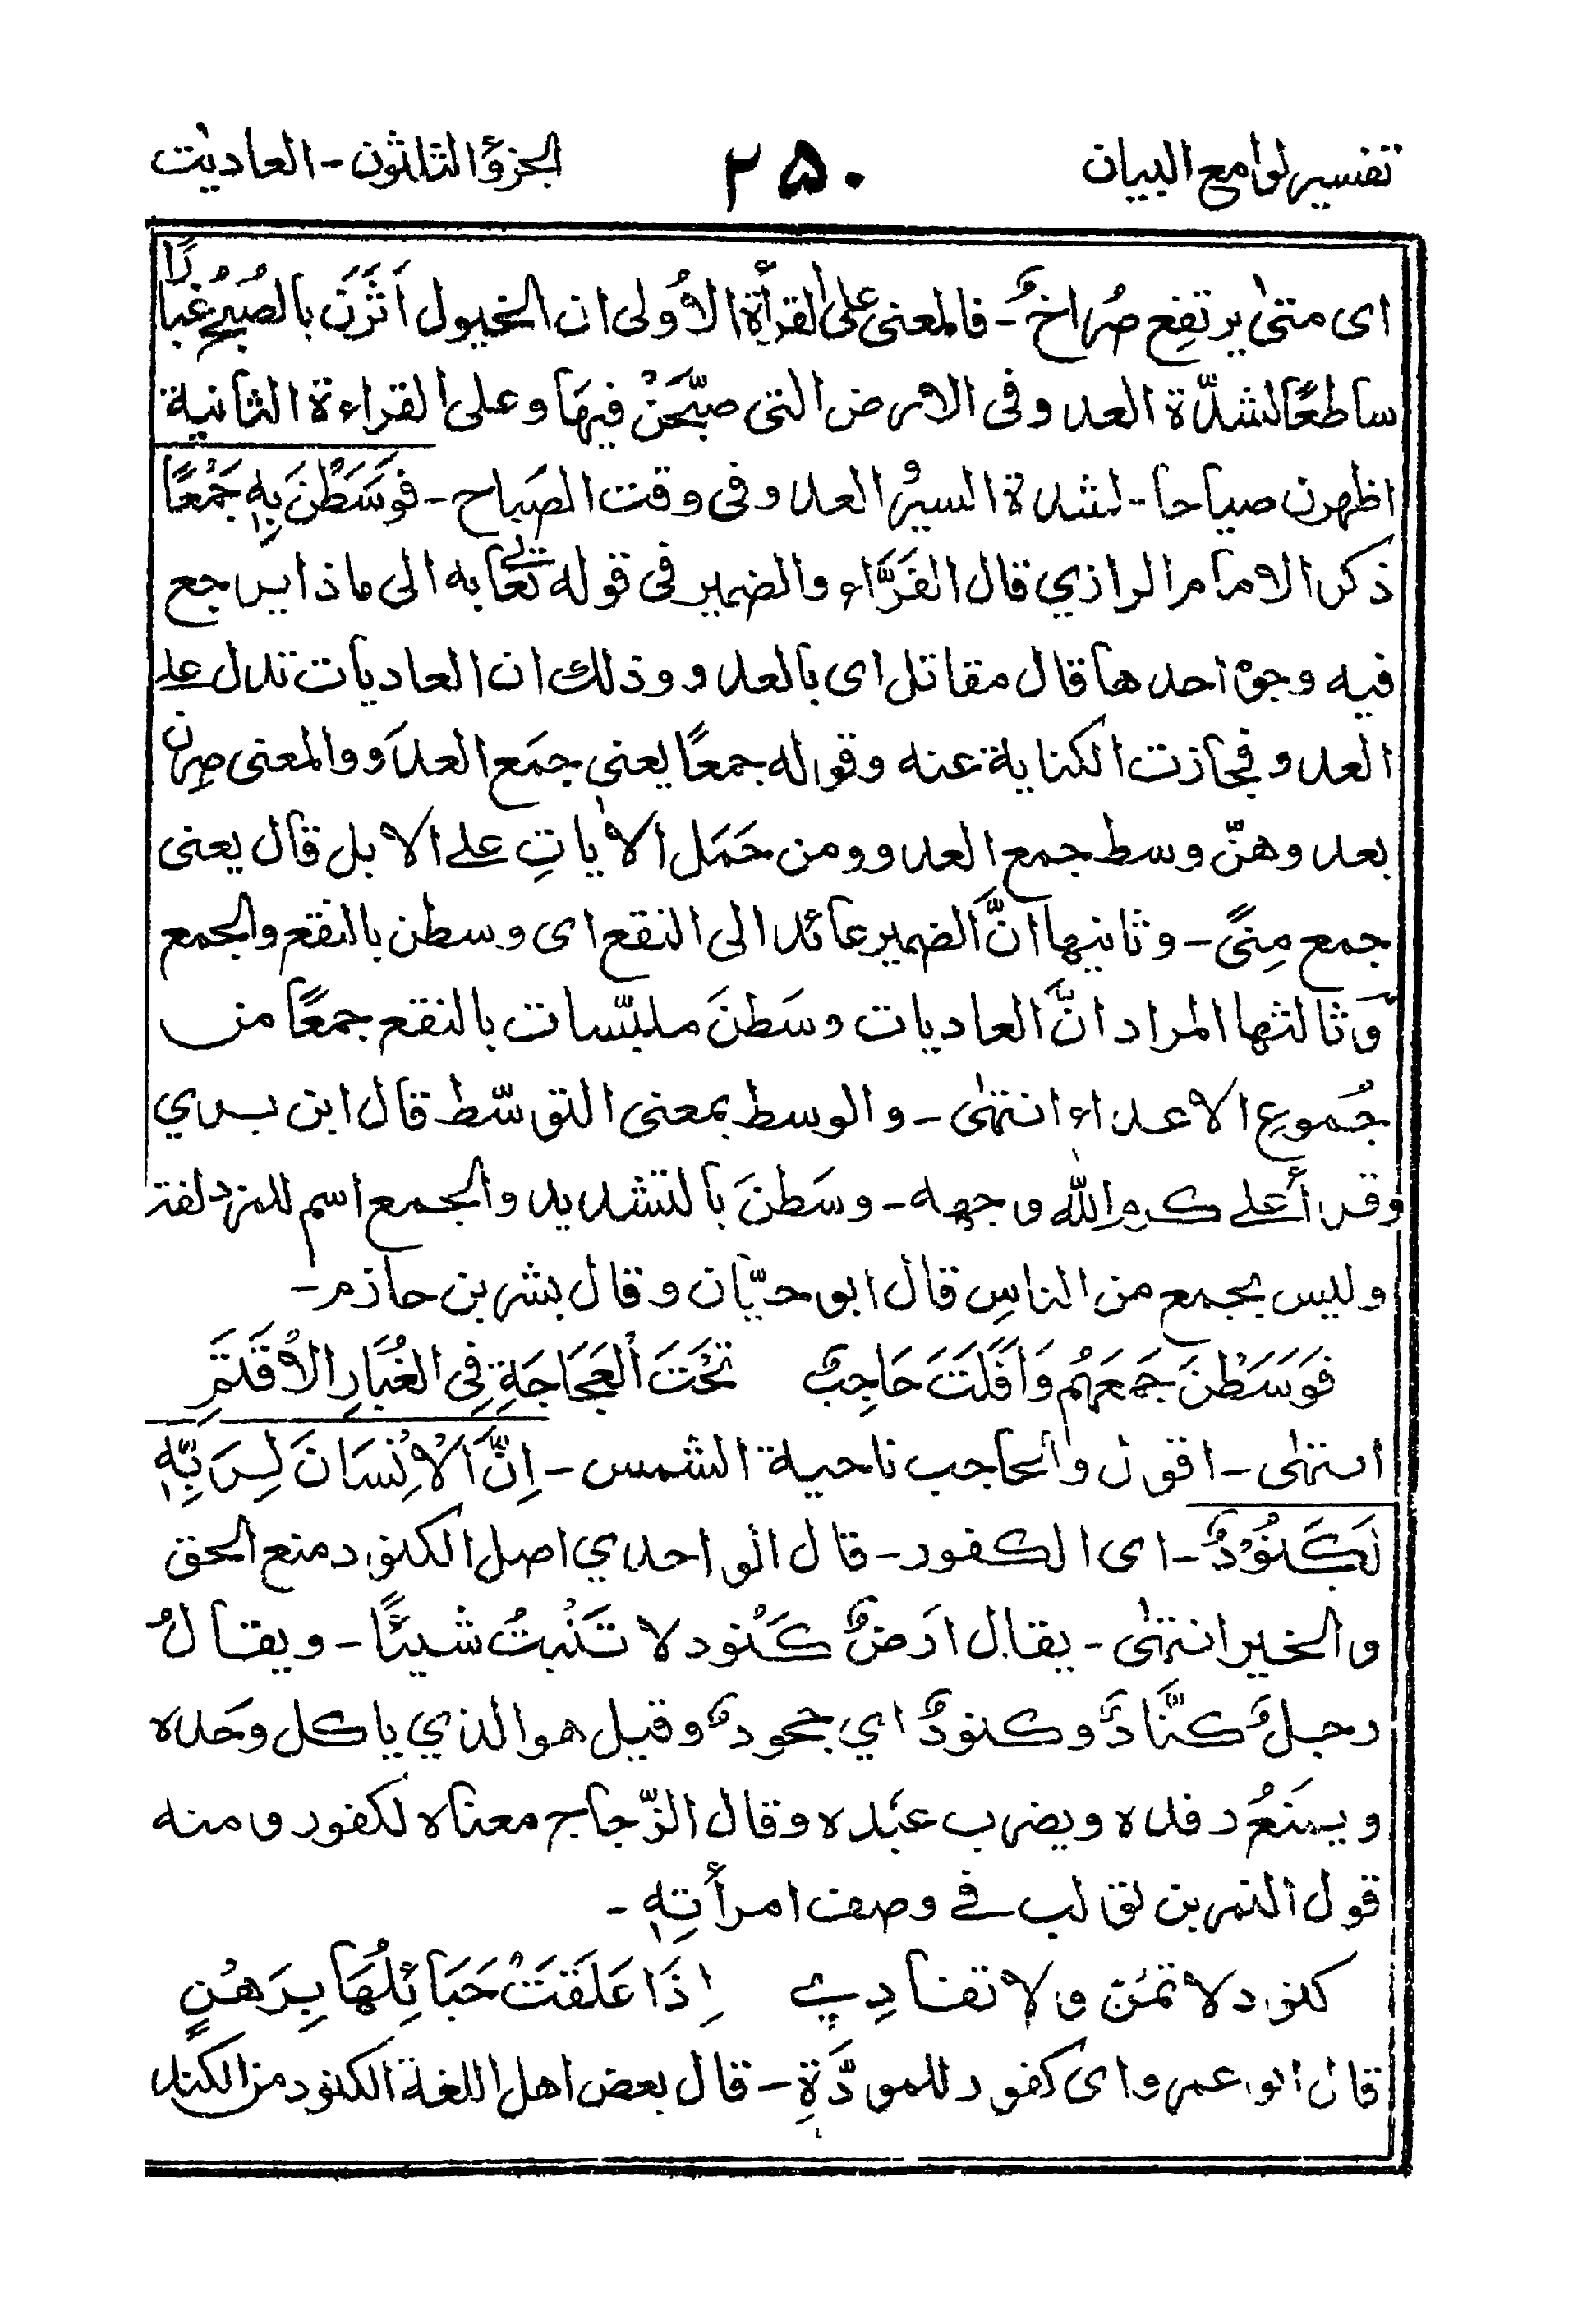 تفسير لوامع البيان ۲۵۰ الجزؤ الثلاثون - العادیٰت
ای متیٰ یرتفِع صُراخٌ - فالمعنی علی القرأة الاُولی ان الخیول اَثَرنَ بالصُبحِ غُبارًا
ساطعًا لشدّة العدو فی الارض التی صبّحَنْ فیهَا وعلی القراءة الثانیة
اظهرن صباحا - لشدة السیر العدو فی وقت الصَباح - فَوَسَطْنَ بِهٖ جَمْعًا
ذکر الامام الرازي قال الفَرَّاء والضمیر فی قوله تعالیٰ به الی ماذا یرجع
فیه وجوه احدها قال مقاتل ای بالعدو وذلك ان العادیات تدل علے
العدو فجازت الکنایة عنه وقوله جمعًا یعنی جمَع العدَو والمعنی صِرن
بعدوهنّ وسط جمع العدو ومن حَمَل الاٰیاتِ علے الابل قال یعنی
جمع مِنیً - وثانیها انَّ الضمیر عائد الی النقع ای وسطن بالنقع والجمع
وَثالثها المراد انَّ العادیات وسَطنَ ملبّسات بالنقع جمعًا من
جُموعِ الاعداء انتهٰی - والوسط بمعنی التوسّط قال ابن بري
وقرأ علی کرم الله وجهه - وسَطنَ بالتشدید والجمع اسم للمزدلفة
ولیس بجمع من الناسِ قال ابوحیّان وقال بشر بن حازم -
فَوَسَطْنَ جَمَعَهُم وَاَفَلَتَ حَاجِبٌ تَحْتَ الْعَجَاجَةِ فِی الغُبَارِ الاْقَتَمِ
انتهٰی - اقول والحاجب ناحیة الشمس - اِنَّ الاْنِسَانَ لِرَبِّهٖ
لَکَنُوْدٌ - ای الکفور - قال الواحدي اصل الکنود منع الحق
والخیر انتهٰی - یقال اَرَضٌ کَنُود لا تَنْبتُ شیئًا - ویقالُ
رجلٌ کنَّادٌ وکنودٌ اي جحودٌ وقیل هو الذي یاکل وحَده
ویمنَعُ رفده ویضرب عَبْده وقال الزّجاج معناه لکفور ومنه
قول النمر بن تولب فے وصف امرأتهٖ -
کنود لا تمُنّ ولا تفادِیے اِذَا عَلَقَتْ حَبَائِلُهَا بِرَهْنٍ
قال ابو عمرو ای کفور للمودَّةِ - قال بعض اهل اللغة الکنود من الکند